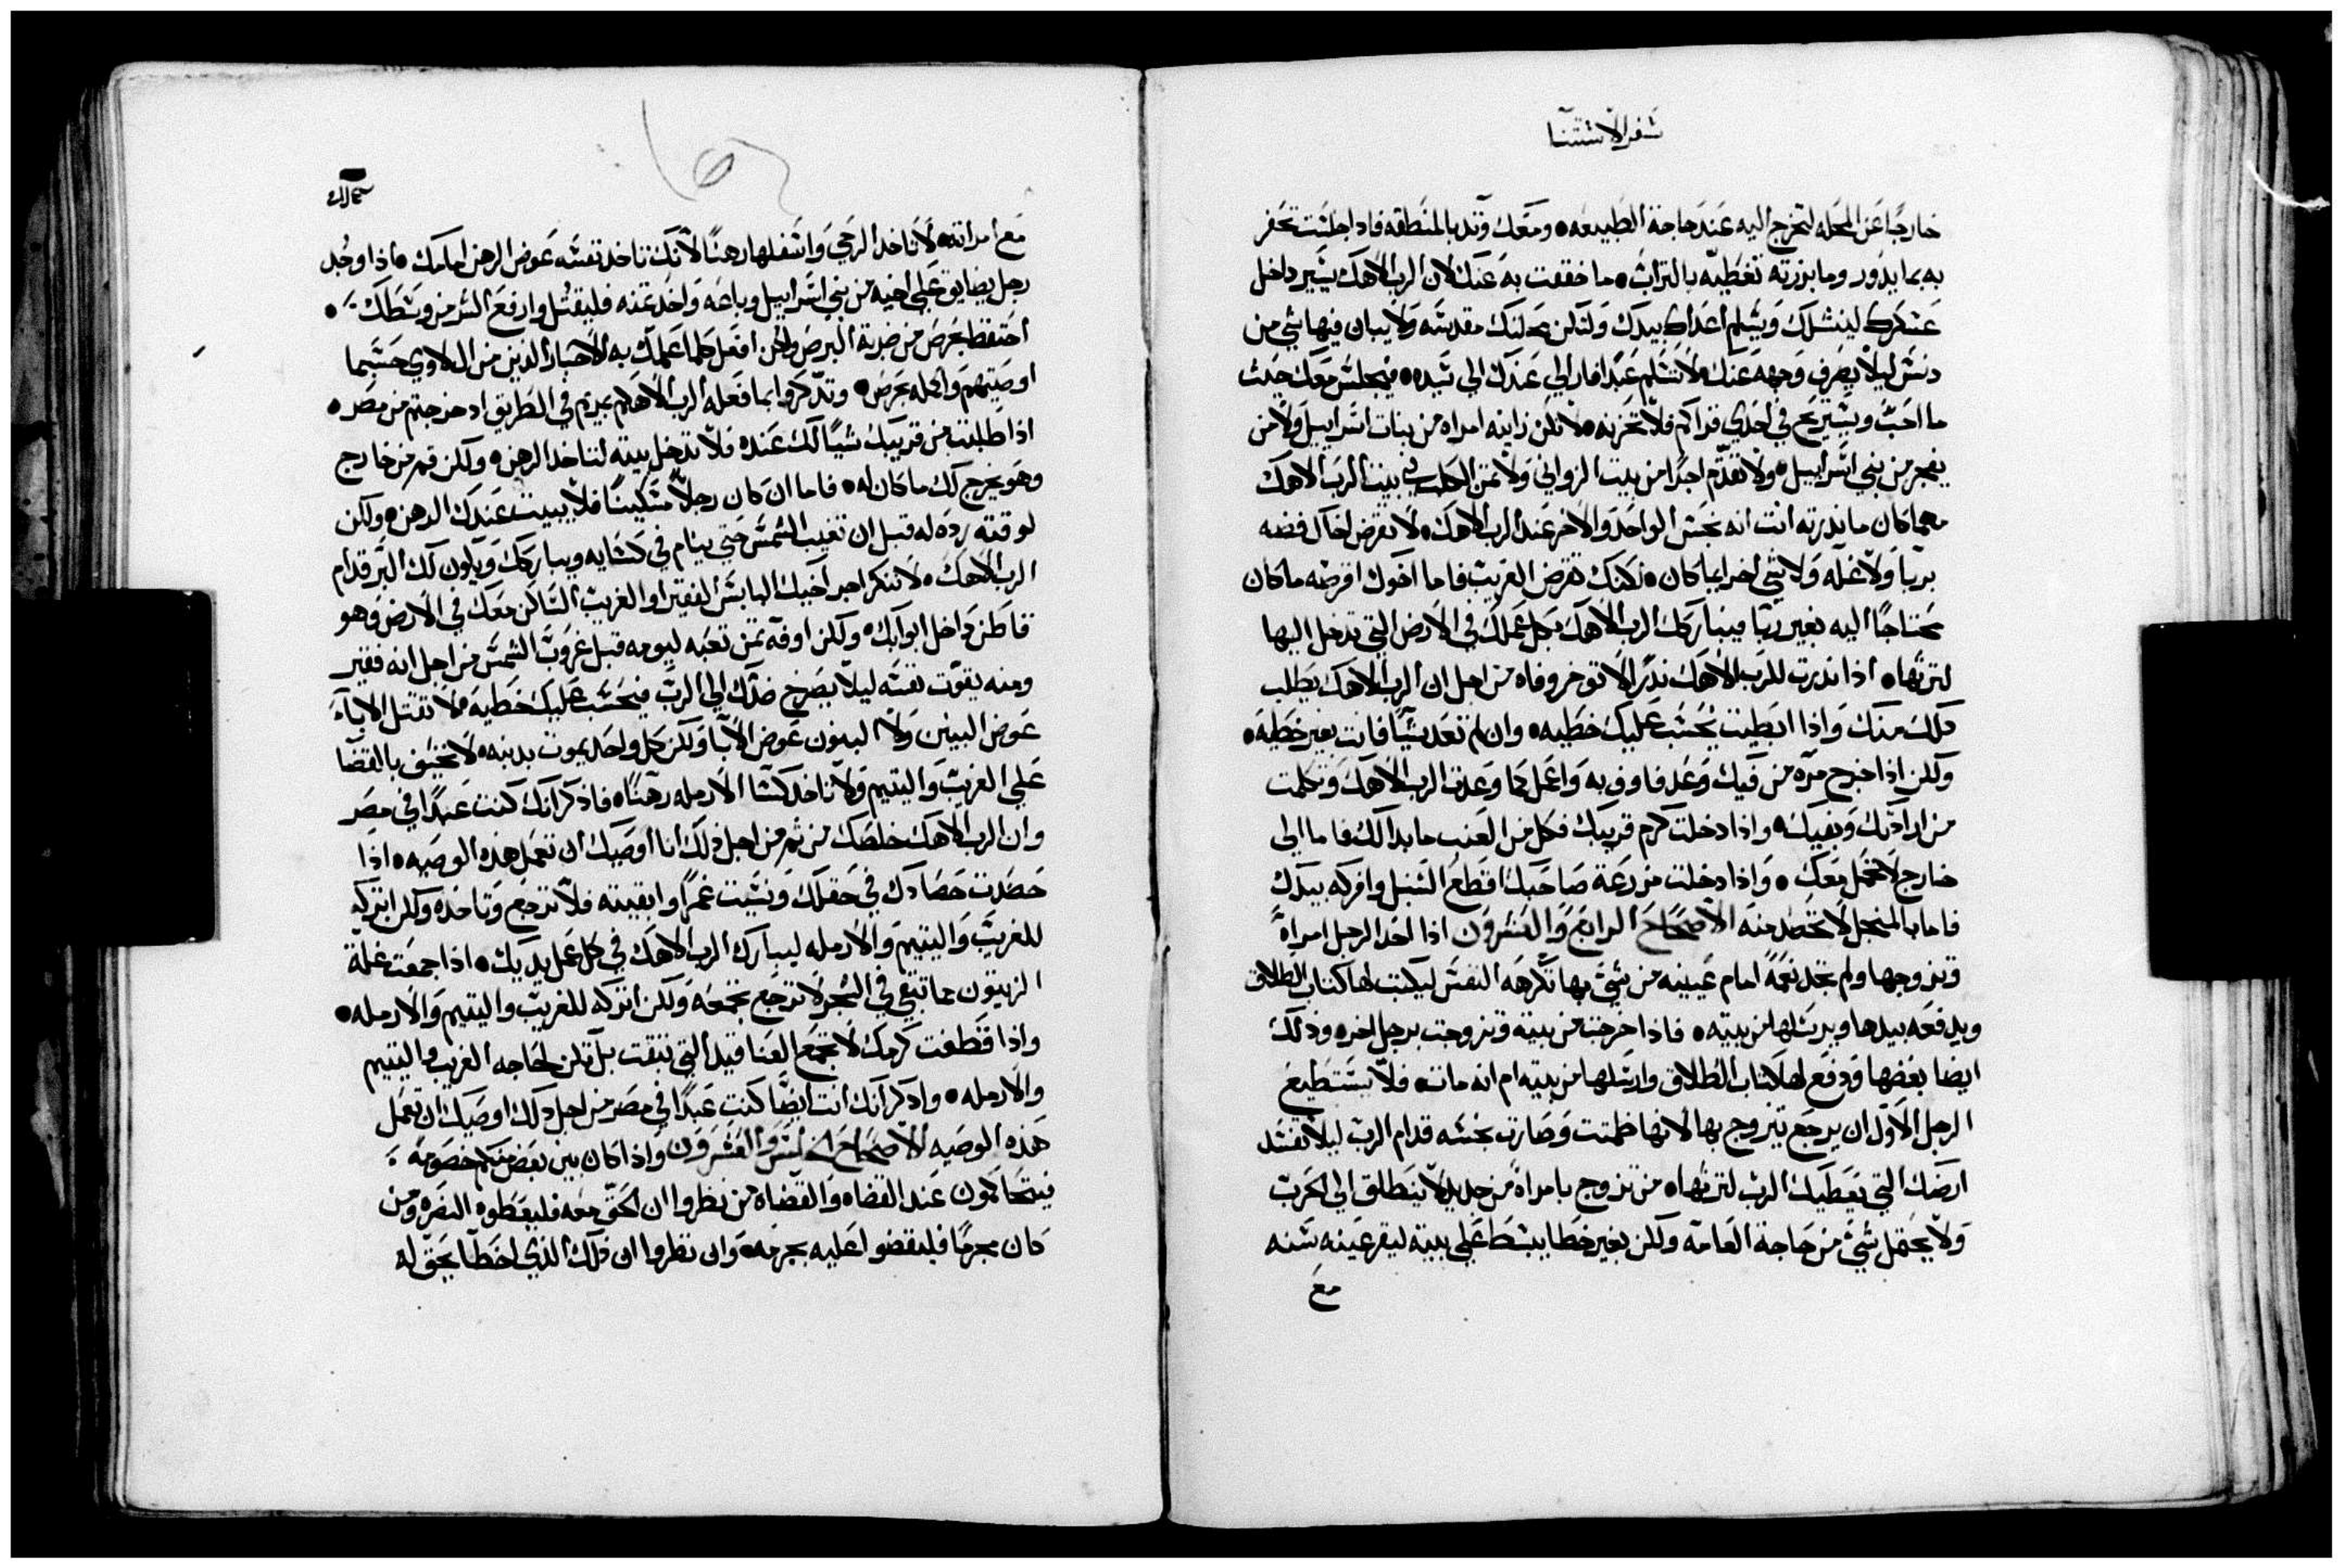 سفر الاستثنا
خارجًا عن المحله لتخرج اليه عند حاجة الطبيعه ومعك وتد بالمنطقه فاذا جلست تحفر
به بما يدور وما برزته تغطيه بالتراب ما خففت به عنك لان الرب الاهك يسير داخل
عسكرك لينشلك ويسلم اعداك بيدك ولتكن محلتك مقدسه ولا يبان فيها شي من
دنس ليلا يصرف وجهه عنك لا تسلم عبدا فار الي عندك الي سيده فيجلس معك حيث
ما احب ويستريح في احدي قراكم فلا تحزنه لا تكن زانيه امراه من بنات اسراييل ولا من
يفجر من بني اسراييل ولا تقدم اجرا من بيت الزواني ولا ثمن الكلب في بيت الرب الاهك
مهما كان ما نذرته انت انه نجس الواحد والاخر عند الرب الاهك لا تقرض اخاك فضه
بربا ولا غله ولا شي اخر ايما كان لكنك تقرض الغريب فاما اخوك اقرضه ما كان
محتاجًا اليه بغير ربا فيباركك الرب الاهك بكل عملك في الارض التي تدخل اليها
لترثها اذا نذرت للرب الاهك نذرًا لا توخر وفاه من اجل ان الرب الاهك يطلب
ذلك منك واذا ابطيت يحسب عليك خطيه وان لم تعد شيًا فانت بغير خطيه
ولكن اذا خرج مره من فيك وعد فاوف به واعمل كما وعدت الرب الاهك وتكلمت
من ارادتك وبفيك واذا دخلت كرم قريبك فكل من العنب ما بدالك فاما الي
خارج لا تحمل معك واذا دخلت مزرعة صاحبك اقطع السنبل وافركه بيدك
فاما بالمنجل لا تحصد منه الاصحاح الرابع والعشرون اذا اخذ الرجل امراةً
وتزوجها ولم تجد نعمةً امام عينيه من شي بها تكرهه النفس ليكتب لها كتاب الطلاق
ويدفعه بيدها ويرسلها من بيته فاذا خرجت من بيته وتزوجت برجل اخر وذلك
ايضا بغضها ودفع لها كتاب الطلاق وارسلها من بيته ام انه مات فلا يستطيع
الرجل الاول ان يرجع يتزوج بها لانها طمتت وصارت نجسه قدام الرب ليلا تفسد
ارضك التي يعطيك الرب لترثها من تزوج بامراةً من جديد لا ينطلق الي الحرب
ولا يحتمل شي من حاجة العامه ولكن بغير خطا يبسط علي بيته ليقر عينه سنه
مع
مع امراته لا تاخد الرحي واسفلها رهنًا لانك تاخد نفسه عوض الرهن امامك اذا وجد
رجل يضايق علي اخيه من بني اسراييل وباعه واخد ثمنه فليقتل وارفع الشر من وسطك
احتفظ بحرص من ضربة البرص ولكن افعل كلما علمك به الاحبار الذين من ال لاوي حسبما
اوصيتهم واكمله بحرص وتذكروا بما فعله الرب الاهكم بمريم في الطريق اد خرجتم من مصر
اذا طلبت من قريبك شيًا لك عنده فلا تدخل بيته لتاخد الرهن ولكن قم من خارج
وهو يخرج لك ما كان له فاما ان كان رجلاً مسكينًا فلا يبيت عندك الرهن ولكن
لوقته رده له قبل ان تغيب الشمس حتي ينام في كسايه ويباركك ويكون لك البر قدام
الرب الاهك لا تنكر اجر اخيك البايس الفقير او الغريب الساكن معك في الارض وهو
قاطن داخل ابوابك ولكن اوفه ثمن تعبه ليومه قبل غروب الشمس من اجل انه فقير
ومنه يقوت نفسه ليلا يصرخ ضدك الي الرب فيحسب عليك خطيه لا تقتل الاباء
عوض البنين ولا البنون عوض الابا ولكن كل واحد يموت بدنبه لا تحيف بالقضا
علي الغريب واليتيم ولا تاخد كسا الارمله رهنًا فاذكر انك كنت عبدًا في مصر
وان الرب الاهك خلصك من ثم من اجل ذلك انا اوصيك ان تعمل هذه الوصيه اذا
حصدت حصادك في حقلك ونسيت غمرًا وابقيته فلا ترجع وتاخذه ولكن اتركه
للغريب واليتيم والارمله ليبارك الرب الاهك في كل عمل يديك اذا جمعت غلة
الزيتون مما تبقي في الشجر لا ترجع تجمعه ولكن اتركه للغريب واليتيم والارمله
واذا قطفت كرمك لا تجمع العناقيد التي تبقت بل تكن لحاجه الغريب واليتيم
والارمله واد كر انك انت ايضًا كنت عبدًا في مصر من اجل ذلك اوصيك ان تعمل
هذه الوصيه الاصحاح الخامس والعشرون واذا كان بين بعض منكم خصومه
فيتحاكمون عند القضاه والقضاة من نظروا ان الحق معه فليعطوه النصره ومن
كان مجرمًا فليقضوا عليه بجرمه وان نظروا ان ذلك الذي اخطا يحق له